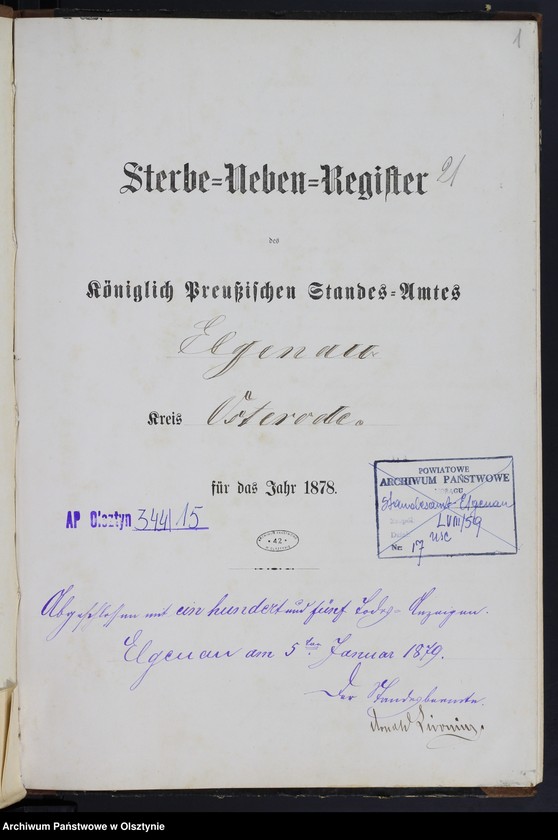 1
Sterbe=Neben=Register 21
des
Königlich Preußischen Standes=Amtes
Elgenau
Kreis Osterode
für das Jahr 1878.
POWIATOWE
ARCHIWUM PAŃSTWOWE
Standesamt Elgenau
LVIII/59
USC
Nr: 17
AP Olsztyn 344/15
42
Abgeschlossen mit ein hundert und fünf Todes-Anzeigen.
Elgenau am 5ten Januar 1879.
Der Standesbeamte.
Arnold
Archiwum Państwowe w Olsztynie